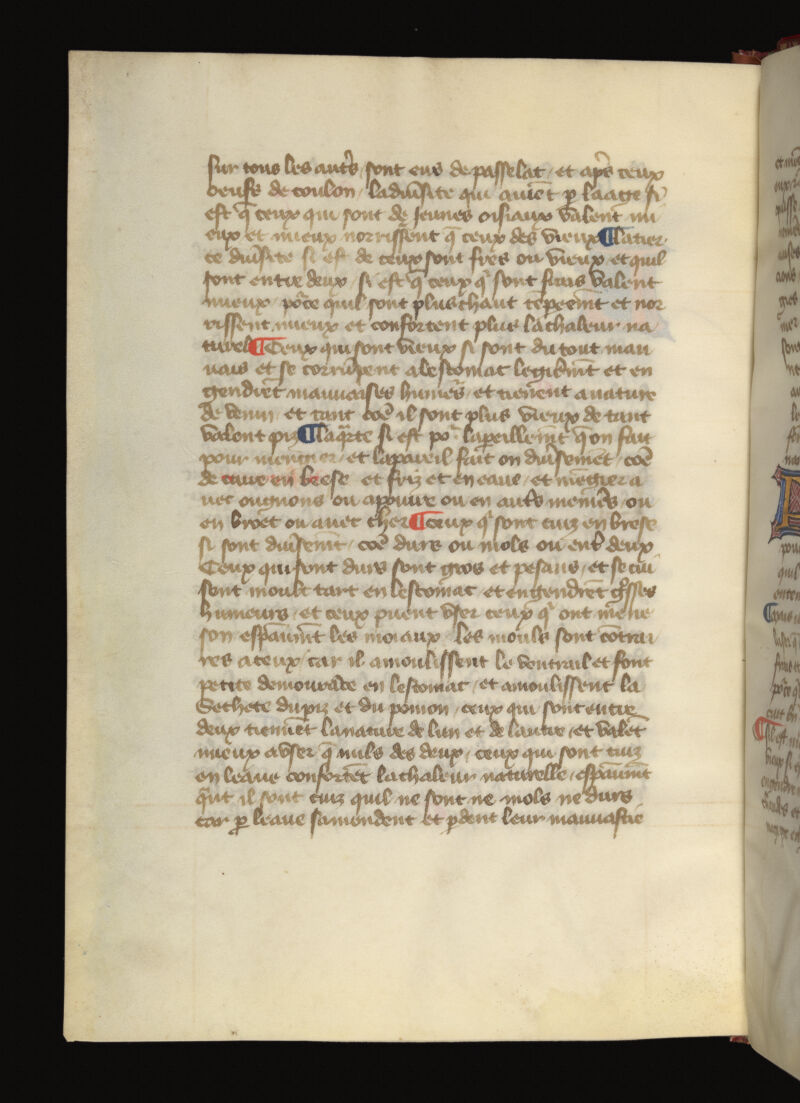 sur tous les autrẽs / sont eus de passelat / et aprẽs ceux
oeufs de coulon / la diũsite qui auiẽt ꝑ laage si
est q̃ ceux qui sont de Jeunes oisiaux valent mi
eux et mieux norrissent q̃ ceux des vieux ¶ la tier
ce diũsite si est de ceux sont fres ou vieux et quil
sont entre deux / si est q̃ ceux q̃ sont frais valent
mieux / põce quil sont plus chaut tẽpeemt̃ et nor
rissent mieux et confortent plus la chaleur na
turel ¶ Ceux qui sont vieux si sont du tout mau
uais et se corrũpent a lestomac legiẽmt̃ et en
gendrẽt mauuaises humẽs / et tienent a nature
de venin / et tant cõe il sont plus vieux de tant
valent piz ¶ la q̃rte si est põ lapeillemt̃ q̃ on fait
pour mengier / et lapaireil fait on diũsemẽt / cõe
de cuire en brese et friz et en eaue / et mẽgier a
uec ongnons ou a poiure ou en autr̃s meniẽs ou
en broet ou auec cher ¶ Ceux q̃ sont cuiz en brese
si sont diũsemt̃ / cõe durs ou mols ou ent̃ deux
Ceux qui sont durs sont gros et pesans / et se cui
sent moult tart en lestomac / et engendrẽt g̃sses
humeurs / et ceux pueent vser ceux q̃ ont mẽue
son esp̃aumt̃ les moiaux / les mouls sont cõtrai
res a ceux / car il amoulissent le ventrail et font
petite demourãce en lestomac / et amoulissent la
Sechete du piz et du pomon / ceux qui sont entre
deux tienẽt la nature de lun et de lautre / et valẽt
mieux a vser q̃ nuls des deux / ceux qui sont cuiz
en leaue confortẽt la chaleur naturelle / esp̃aumt̃
q̃nt il sont cuiz quil ne sont ne mols ne durs
car ꝑ leaue samendent et ꝑdent leur mauuastie